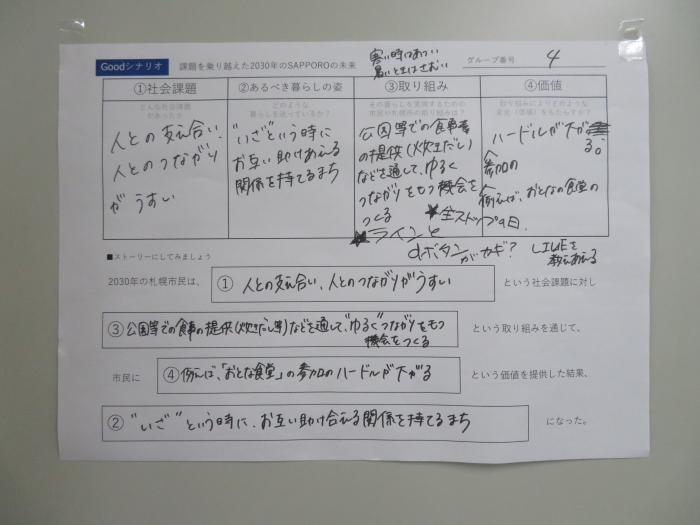 Goodシナリオ 課題を乗り越えた2030年のSAPPOROの未来
寒い時はあつい
暑いときはさむい
グループ番号 4
①社会課題
どんな社会課題
があったか
人との支え合い、
人とのつながり
がうすい
②あるべき暮らしの姿
どのような
暮らしを送っているか？
"いざ"という時に
お互い助けあえる
関係を持てるまち
③取り組み
その暮らしを実現するための
市民や札幌市の取り組みは？
公園等での食事
の提供（炊きだし）
などを通して、ゆるく
つながりをもつ機会を
つくる
④価値
取り組みによりどのような
変化（価値）をもたらすか？
ハードルが下がる。
参加の
例えば、おとなの食堂の
★全ストップの日
★ラインと
dボタンがカギ？
LINEを
教えあえる
■ストーリーにしてみましょう
2030年の札幌市民は、 ① 人との支え合い、人とのつながりがうすい という社会課題に対し
③ 公園等での食事の提供（炊きだし等）などを通して、"ゆるく"つながりをもつ
機会をつくる
という取り組みを通じて、
市民に ④ 例えば、「おとな食堂」の参加のハードルが下がる という価値を提供した結果、
② "いざ"という時に、お互い助け合える関係を持てるまち になった。